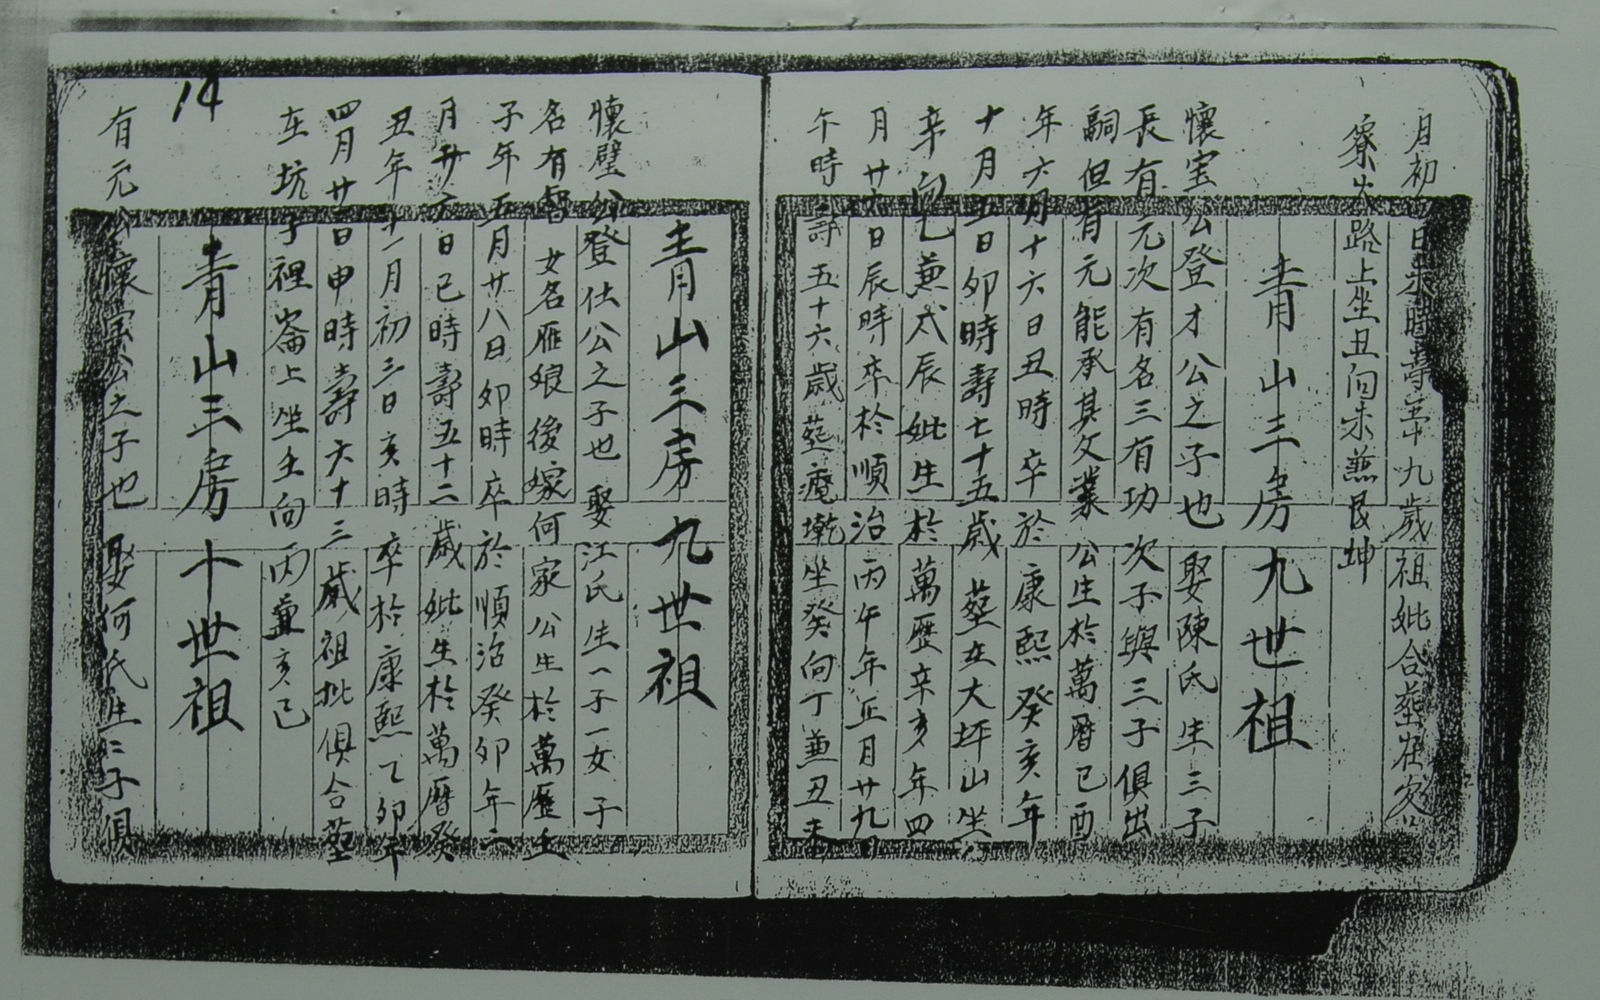 月初四日未時壽五十九歲祖妣合葬在客
寮尖路上坐丑向未兼艮坤
青山三房九世祖
懷宝公登才公之子也娶陳氏生三子
長有元次有名三有功次子與三子俱出
嗣但有元能承其父業公生於萬曆己酉
年六月十六日丑時卒於康熙癸亥年
十月五日卯時壽七十五歲葬在大坪山坐
辛向乙兼戌辰妣生於萬歷辛亥年四
月廿六日辰時卒於順治丙午年正月廿九日
午時 五十六歲葬 坐癸向丁兼丑未
青山三房九世祖
懷壁公登仕公之子也娶江氏生一子一女子
名有智女名雁娘後嫁何家公生於萬歷壬
子年五月廿八日卯時卒於順治癸卯年二
月廿六日巳時壽五十二歲妣生於萬曆癸
丑年十一月初三日亥時卒於康熙乙卯年
四月廿三日申時壽六十三歲祖妣俱合塟
在坑子裡崙上坐壬向丙兼亥巳
14
青山三房十世祖
有元公懷宝公之子也娶何氏生仁子俱